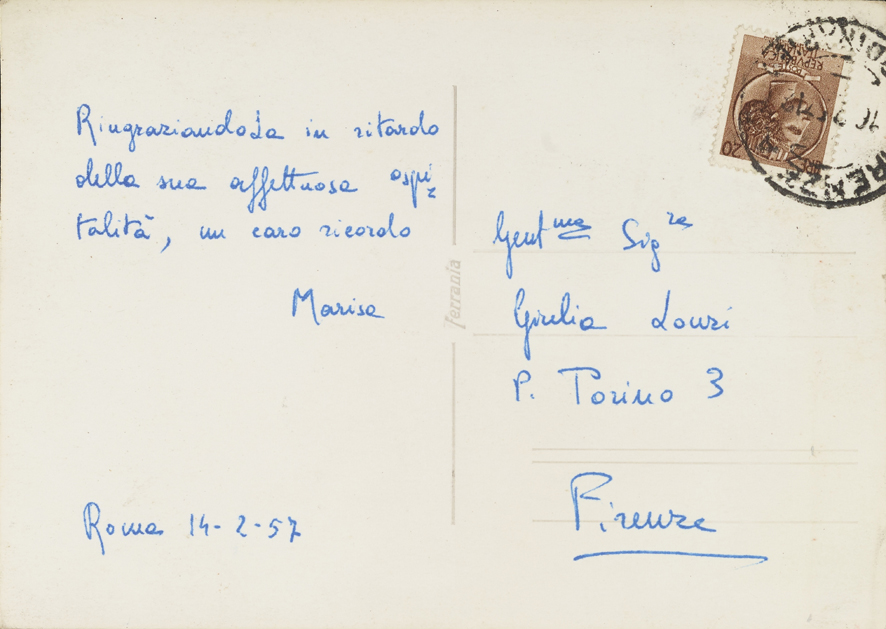 RingraziandoLa in ritardo
della sua affettuosa ospi
talità, un caro ricordo
Marisa
Roma 14-2-57
ferrania
Gent.ma Sig.ra
Giulia
P. Torino 3
Firenze
POSTE
REPVBBLICA
ITALIANA
LIRE 20